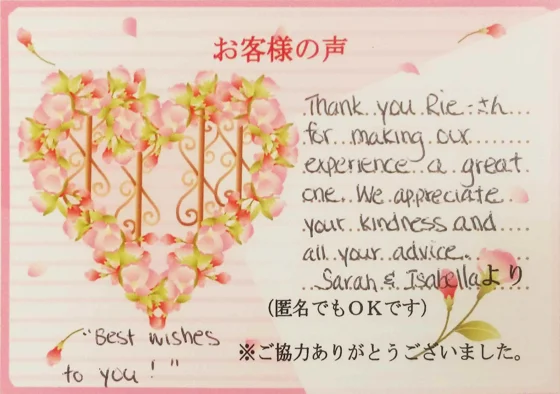 お客様の声
Thank you Rie-さん
for making our
experience a great
one. We appreciate
your kindness and
all your advice.
Sarah & Isabellaより
(匿名でもOKです)
"Best wishes
to you! "
※ご協力ありがとうございました。